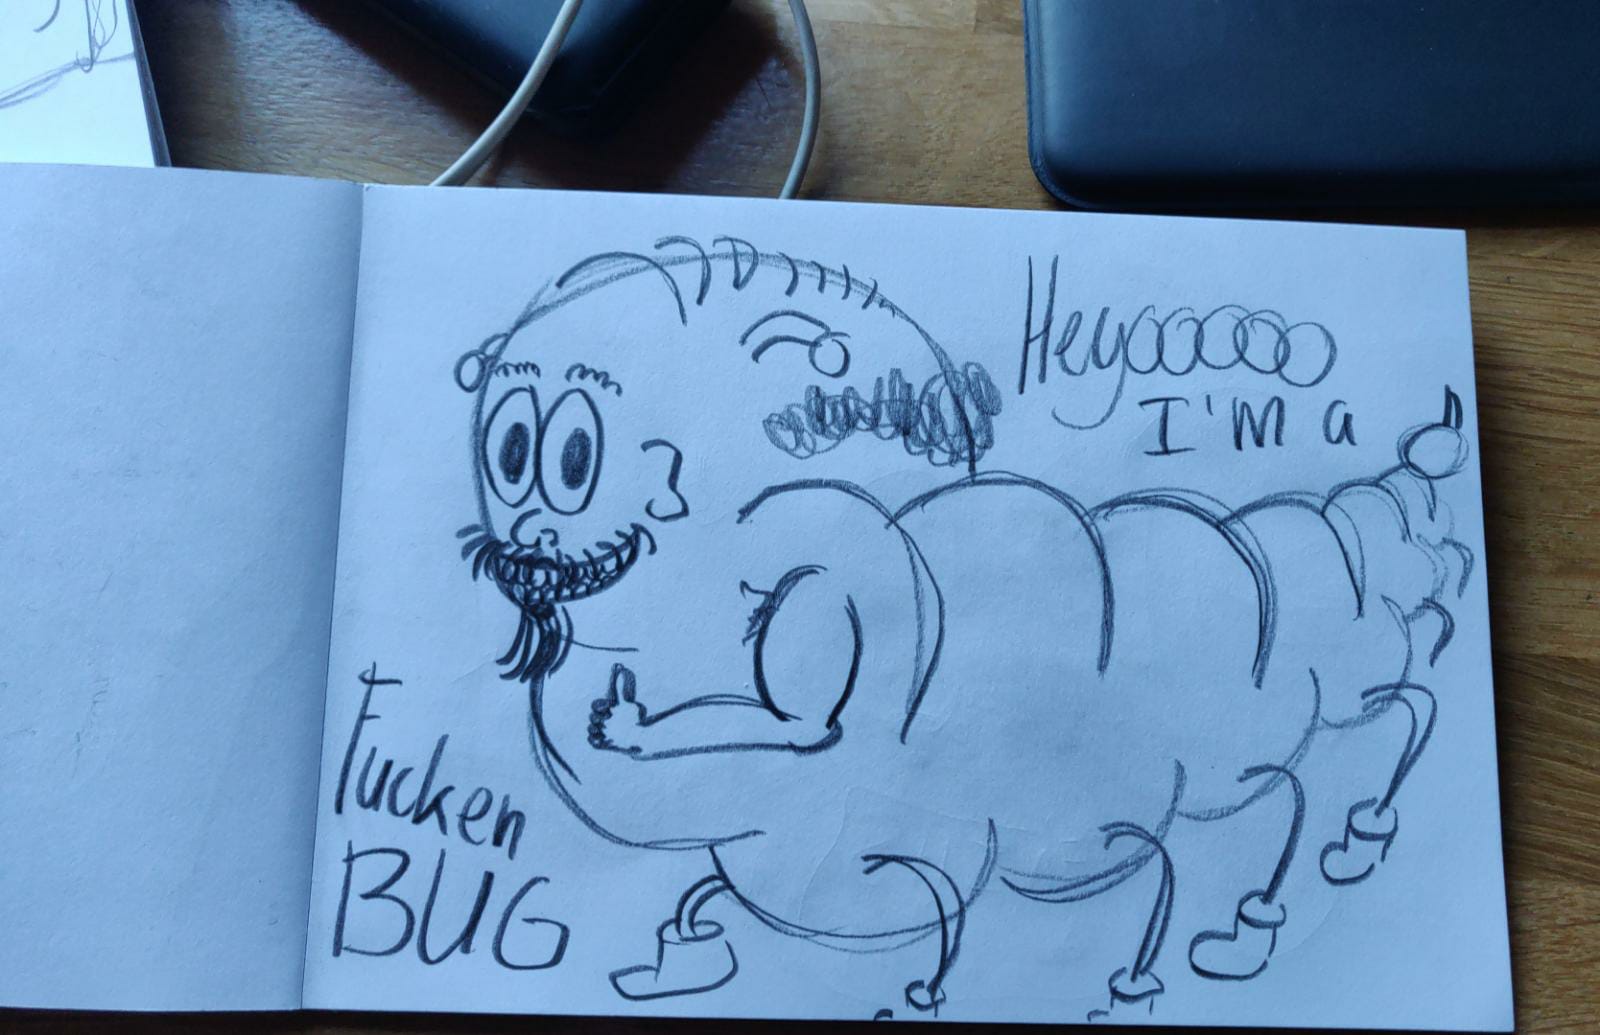 Heyoooooo
I'm a
Fucken
BUG